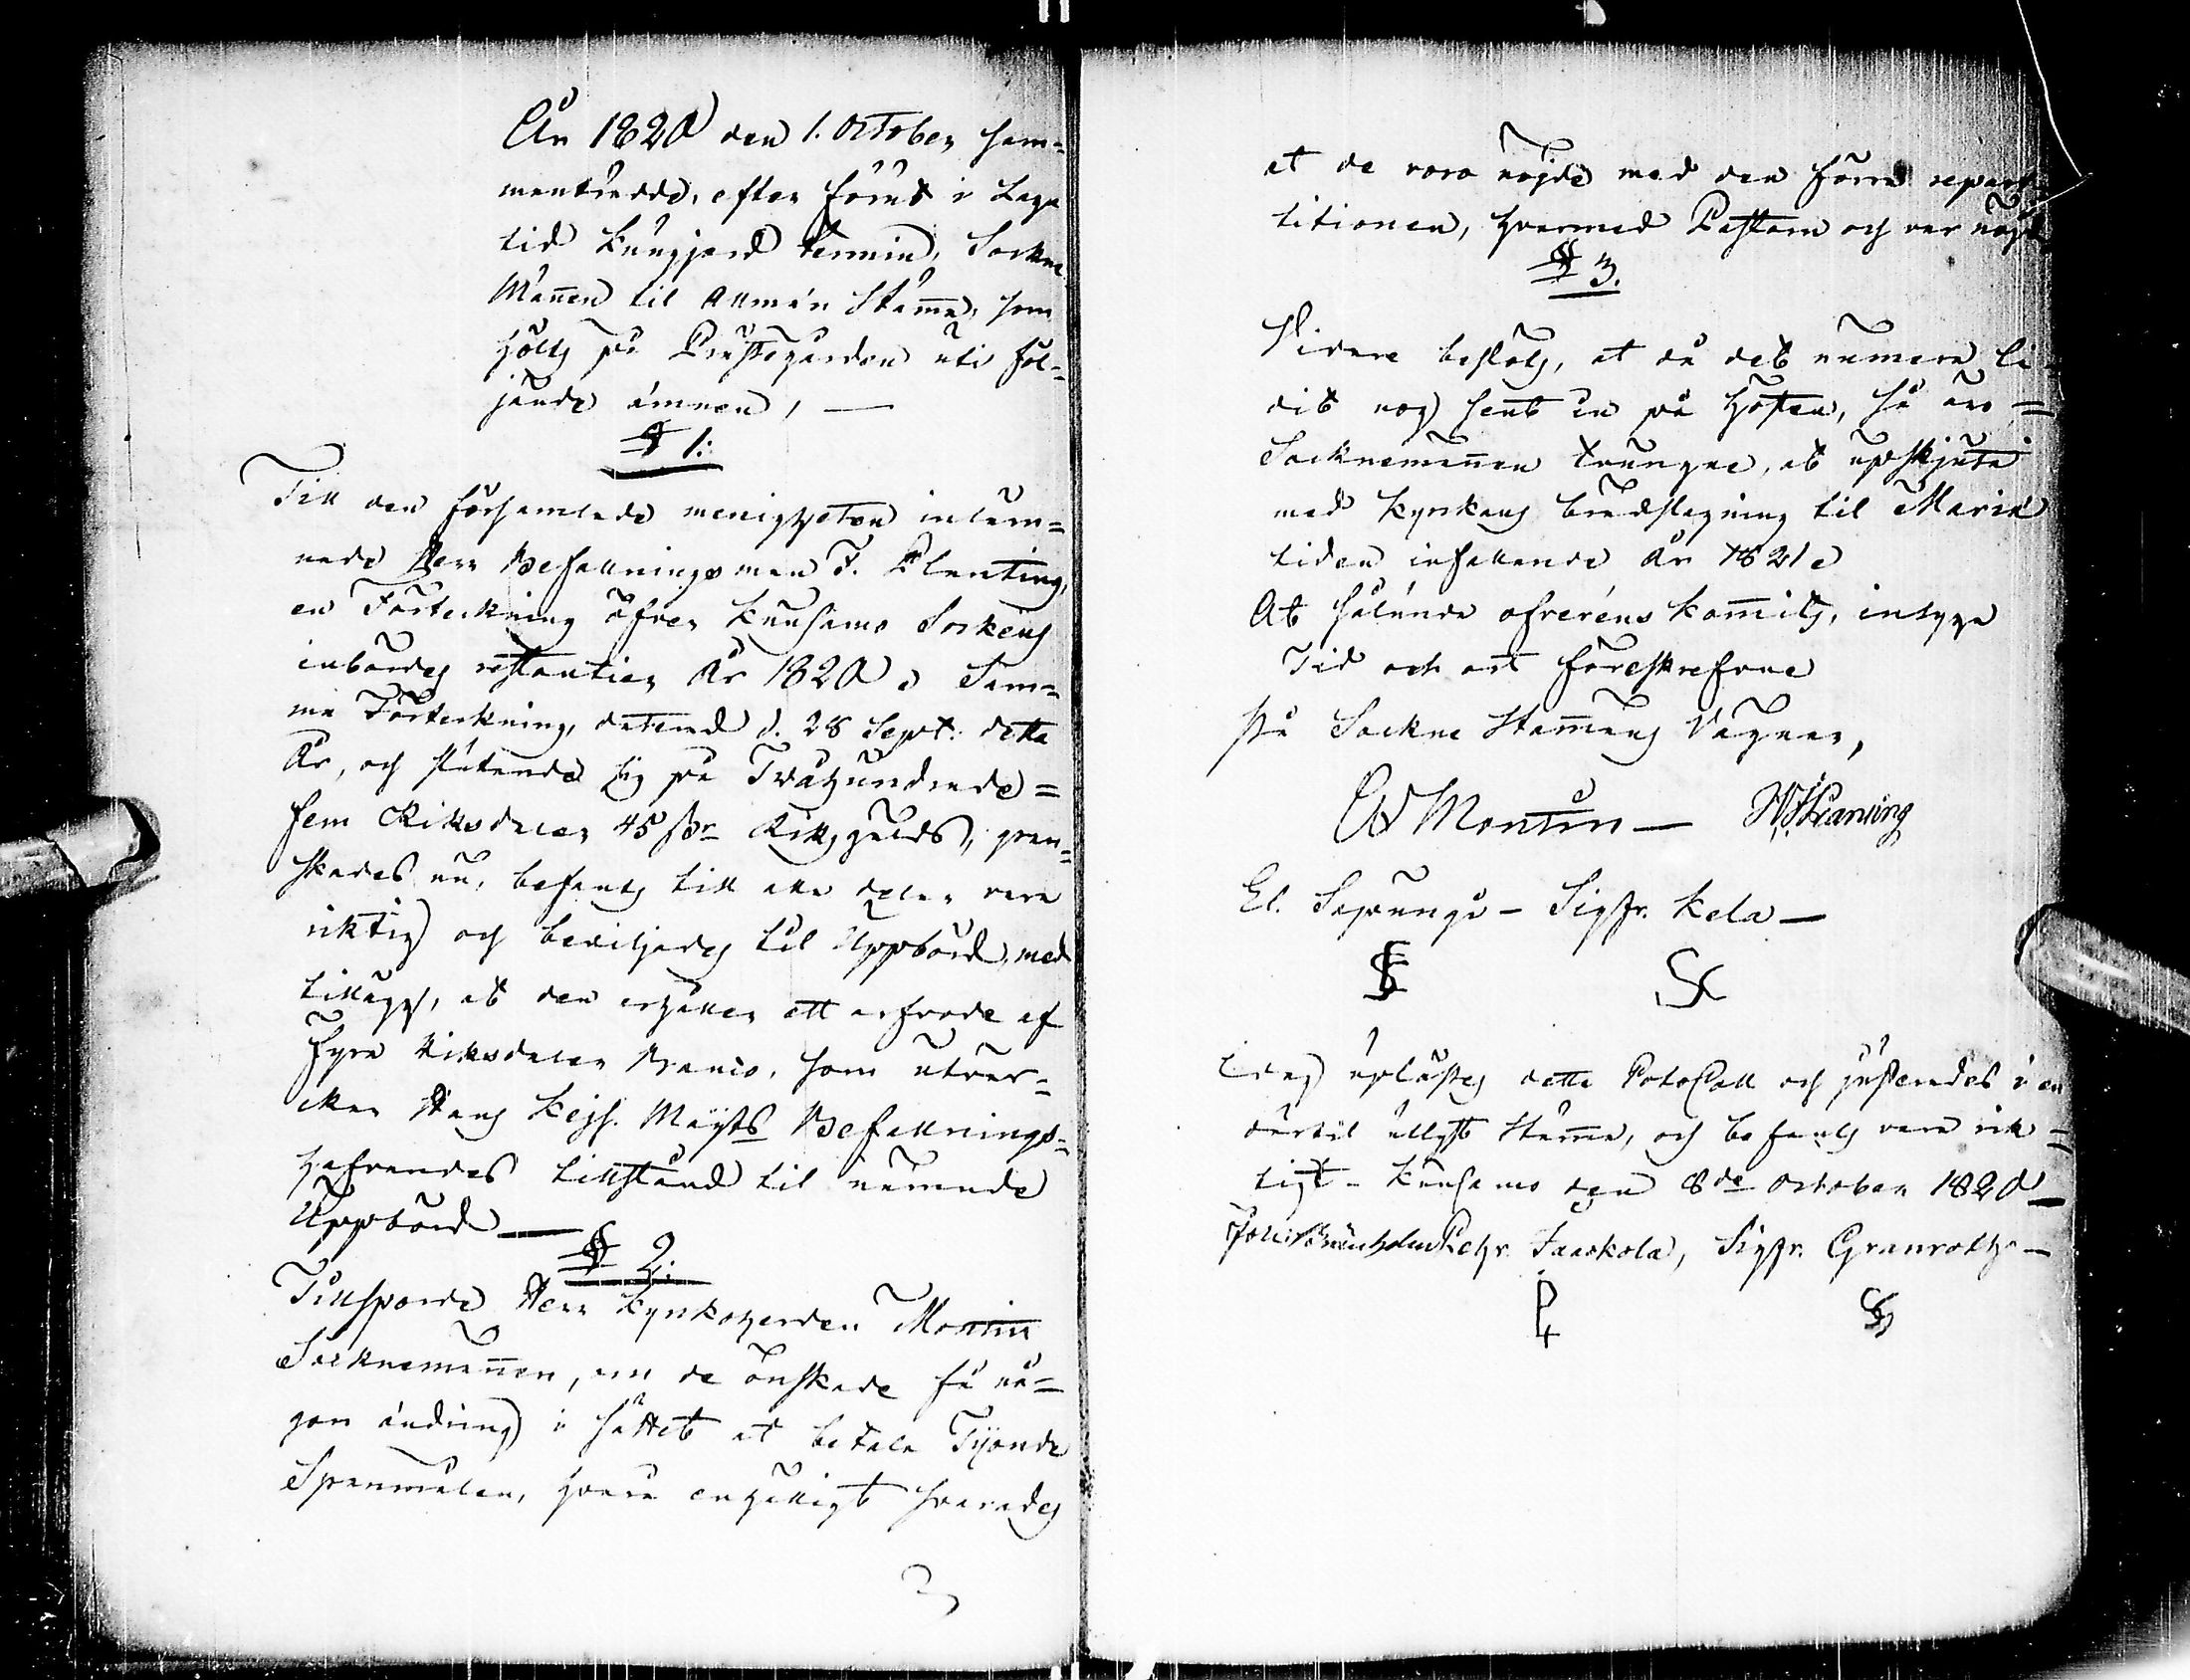 År 1820 den 1. October sam=
manträdde, efter förut i Laga
tid kungjord termin, Sockne
Männen til Allmän Stämma, som
hölts på Prästegården uti föl=
jande ämnen, —
§ 1:
Till den församlade menigheten inläm=
nade Herr Befallningsman F. Planting,
en Förteckning öfver Kuusamo Sockens
inbördes restantier År 1820. Sam=
ma Förteckning, daterad d. 28 Sept. detta
År, och slutande sig på Tvåhundrade=
fem Riksdaler 45 sz Riksgälds, gran=
skades nu, befants till alla delar vara
riktig och beviljades til Uppbörd, med
tillägg, at den erhåller ett arfvode af
Fyra Riksdaler Banco, som utver=
kar Hans Kejs. Maj:ts Befallnings=
hafvandes tillstånd til nämnde
Uppbörd —
§ 2:
Tillsporde Herr Kyrkoherden Montin
Socknemännen, om de önskade få nå=
gon ändring i sättet at betala Tijonde
Spanmålen, hvarå enhälligt svarades
at de voro nöjde med den förra repar=
titionen, hvarmed Pastorn och var nöjd
§ 3.
Vidare beslöts, at då det numera li=
dit nog sent in på Hösten, så äro =
Socknemännen tvungne, at upskjuta
med kyrkans brädslagning til Mariæ
tiden infallande År 1821.
At sålunda öfverenskommits, intyga
Tid och ort föreskrefvne
På Sockne Stämmans Vägnar,
El. Säpunge — Sigfr. Kela —
SE SK
Idag uplästes detta Protocoll och justerades i en
dertil utlyst Stämma, och befants vara rik=
tigt — Kuusamo den 8de October 1820 —
Pehr. Jaakola, Sigfr. Granroth —